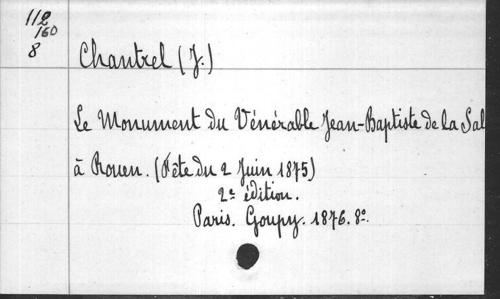 112
160
8
Chantrel (J.)
Le Monument du Vénérable Jean-Baptiste de la Sal
à Rouen. (Fête du 2 Juin 1875)
2e édition.
Paris. Goupy. 1876. 8o.